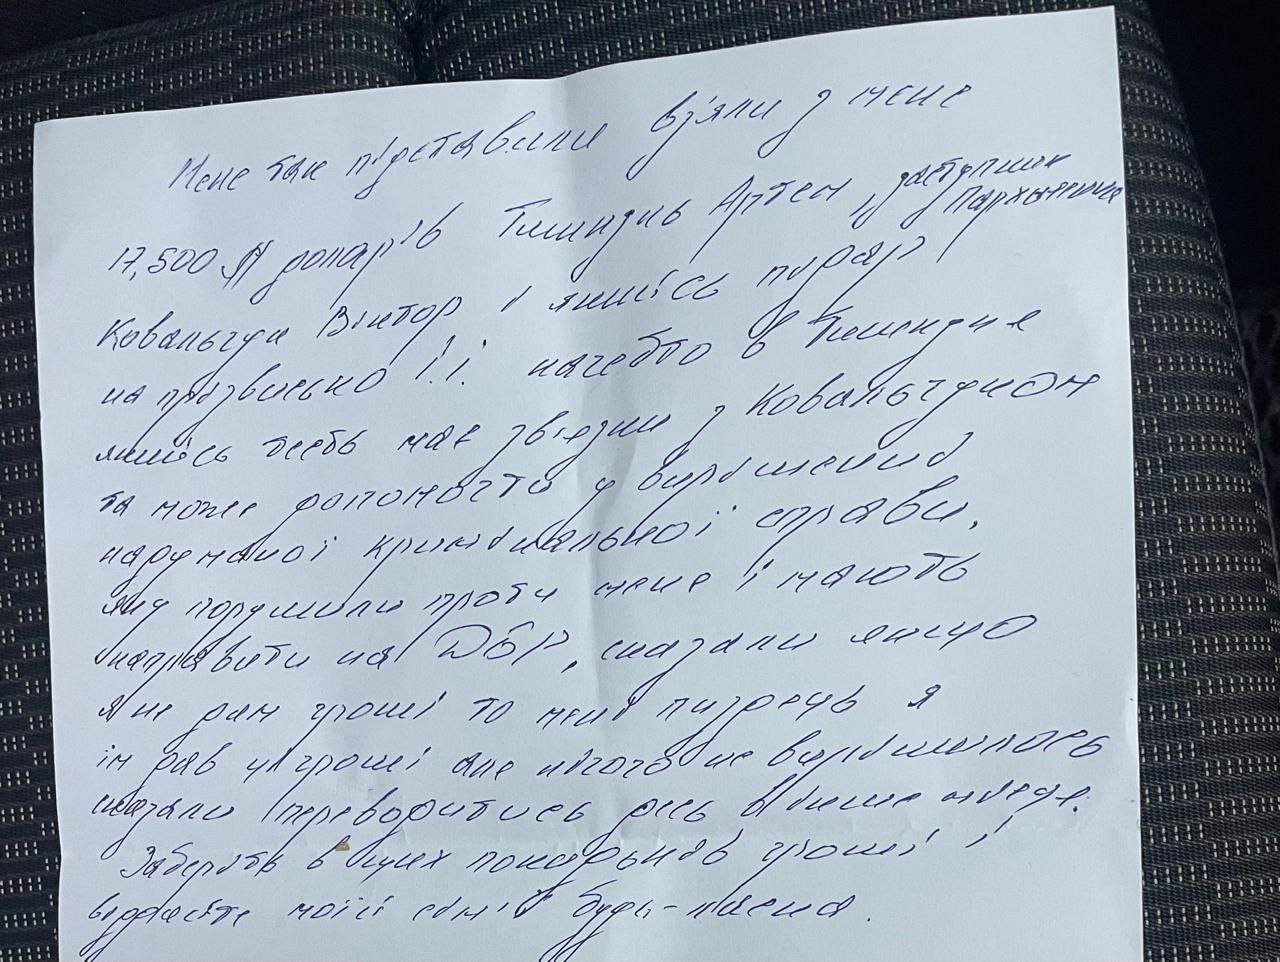 Мене так підставили вз'яли з мене
17,500 $ доларів Тимидзь Артем, заступник Пархоменка
Ковальчук Віктор і якийсь підар
на прізвисько І.І. начебто в Тимидзя
якийсь тесть має звязки з Ковальчуком
та може допомогти у вирішенні
надуманої кримінальної справи,
яку порушили проти мене і мають
направити на ДБР, сказали якщо
я не дам гроші то мені пиздець я
їм дав ці гроші але нічого не вирішилось
сказали переводитись десь в інше місце.
Заберіть в цих покидьків гроші і
віддайте моїй сім'ї будь-ласка.